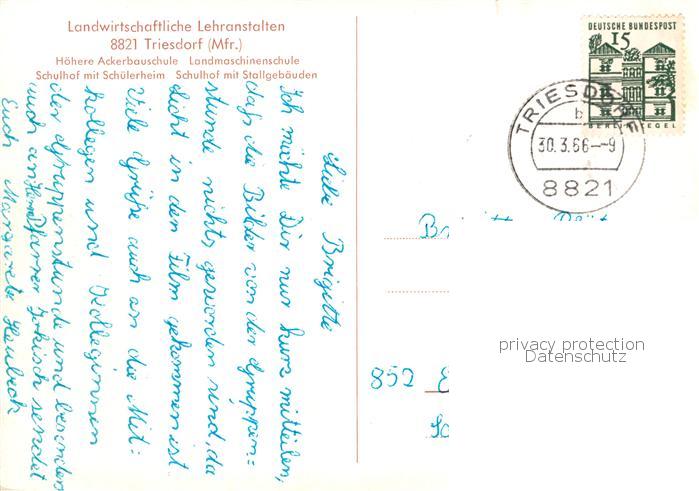 Landwirtschaftliche Lehranstalten
8821 Triesdorf (Mfr.)
Höhere Ackerbauschule Landmaschinenschule
Schulhof mit Schülerheim Schulhof mit Stallgebäuden
DEUTSCHE BUNDESPOST
15
BERLIN-TEGEL
TRIESDORF
b
30.3.66--9
8821
Liebe Brigitte
Ich möchte Dir nur kurz mitteilen,
daß die Bilder von der Gruppen=
stunde nichts geworden sind, da
Licht in den Film gekommen ist
Viele Grüße auch an die Mit:
kollegen und Kolleginnen
der Gruppenstunde und besonders
auch an Herrn Pfarrer sendet
Euch Margarete
852
privacy protection
Datenschutz